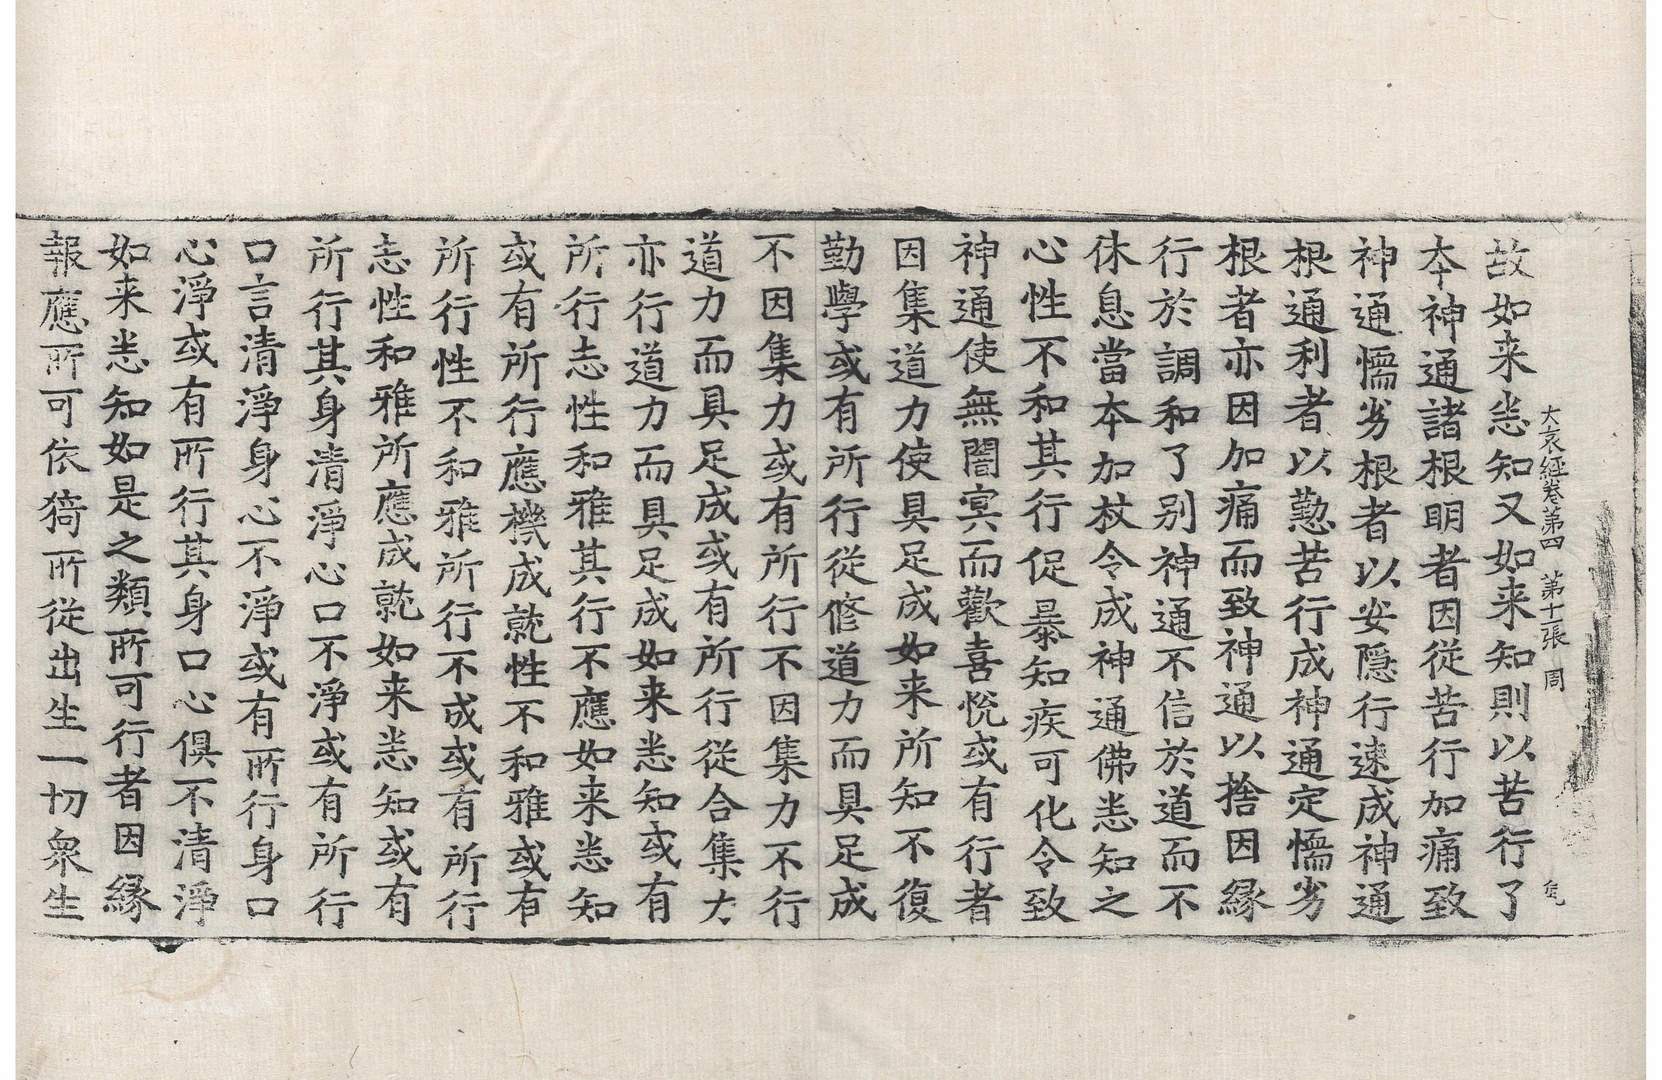 大哀經卷第四　第十二張　周
故如来悉知又如来知則以苦行了
本神通諸根明者因従苦行加痛致
神通懦劣根者以安隱行速成神通
根通利者以懃苦行成神通定懦劣
根者亦因加痛而致神通以捨因縁
行於調和了别神通不信於道而不
休息當本加杖令成神通佛悉知之
心性不和其行促暴知疾可化令致
神通使無闇冥而歡喜悅或有行者
因集道力使具足成如来所知不復
勤學或有所行從修道力而具足成
不因集力或有所行不因集力不行
道力而具足成或有所行從合集大
亦行道力而具足成如来悉知或有
所行志性和雅其行不應如来悉知
或有所行應機成就性不和雅或有
所行性不和雅所行不成或有所行
志性和雅所應成就如来悉知或有
所行其身清淨心口不淨或有所行
口言清淨身心不淨或有所行身口
心淨或有所行其身口心俱不清淨
如来悉知如是之類所可行者因縁
報應所可依猗所從出生一切衆生